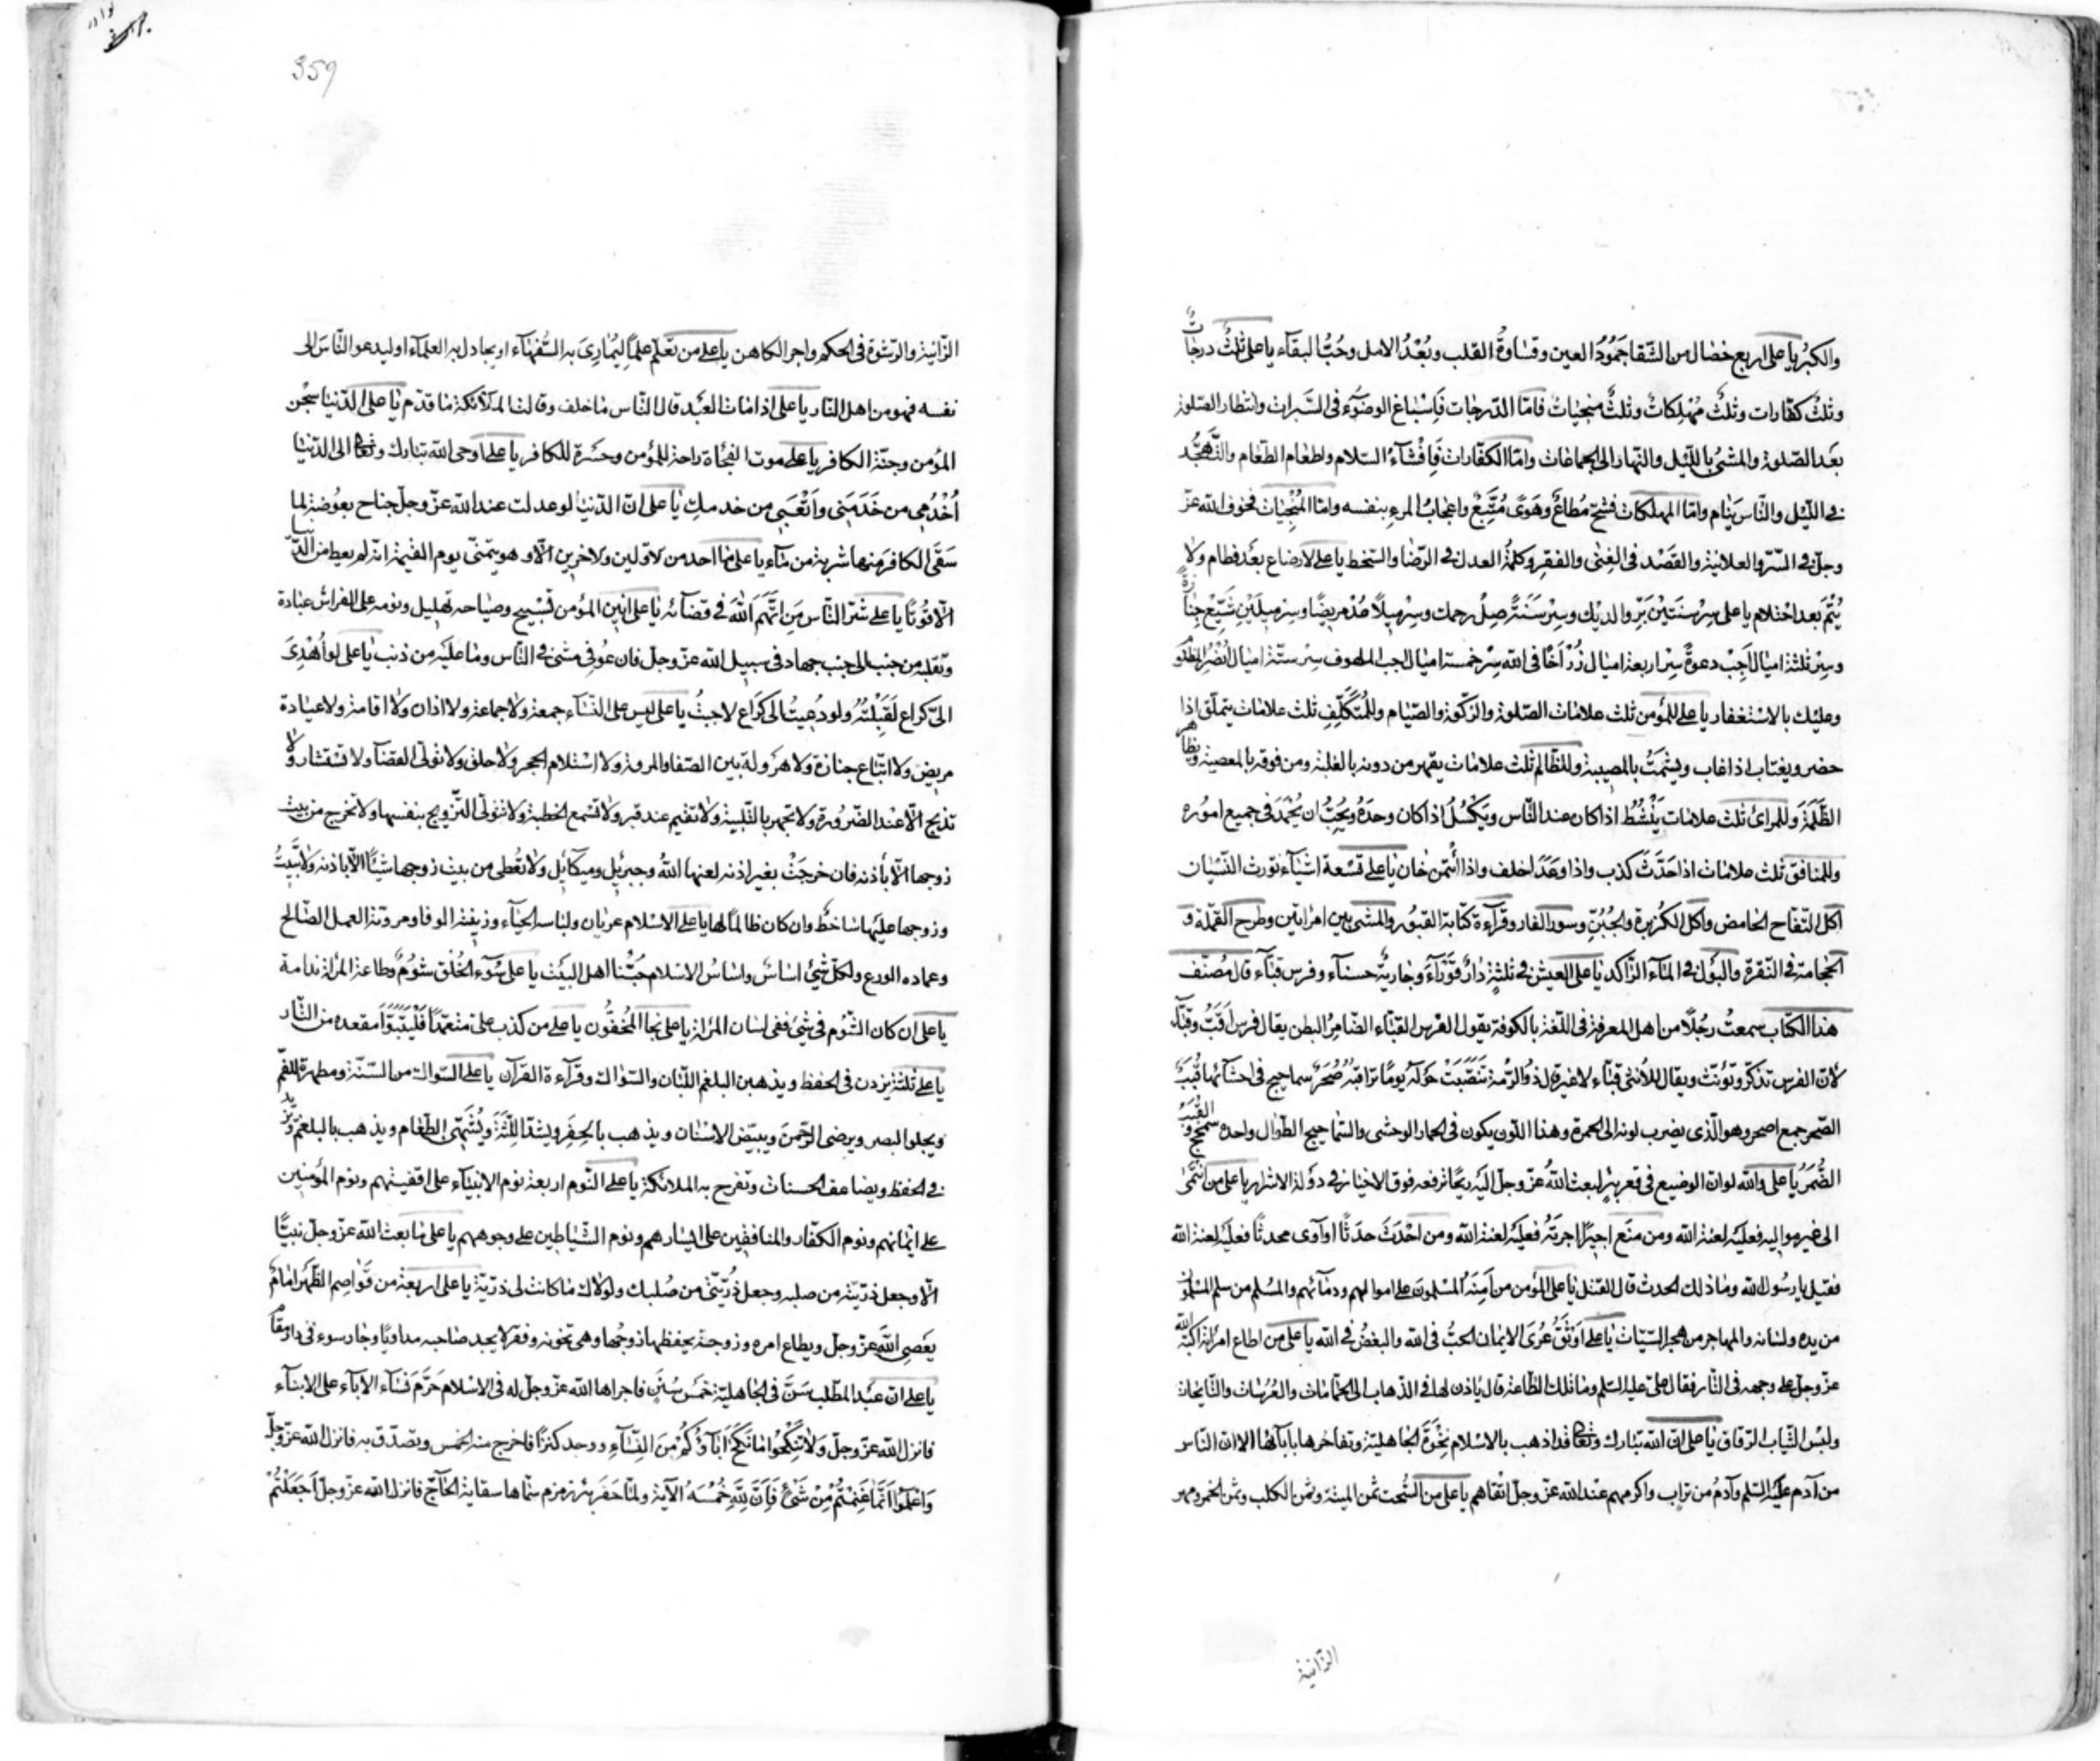 والكبرُ يا على اربع خصال من الشقا جمُودُ العين وقساوةُ القلب وبُعْدُ الامل وحُبُّ البقآء يا على ثلثٌ درجاتٌ
وثلثٌ كفّارات وثلثٌ مُهْلِكاتٌ وثلثٌ منجياتٌ فامّا الدّرجات فَاِسْباغ الوضوء فى السَّبرات وانتظار الصّلوة
بَعد الصّلوة والمشىُ بالليّل والنّهار الى الجماعات وامّا الكفّارات فَاِفْشآءُ السّلام واطعام الطعام والتَّهجُّد
فى اللّيْل والنّاس نِيام وامّا المهلكات فشحٌّ مُطاعٌ وهَوىً مُتَّبعٌ واعجابُ المرءِ بنفسه وامّا المُنْجيٰات فخوف الله عزّ
وجلّ فى السّرّ والعلانية والقَصْد فى الغِنٰى والفقرِ وكلمةُ العدل فى الرّضا والسّخط يا على لا رضاع بَعْد فطام ولا
يُتْم بعد احتلام يا على سِرْ سنَتَيْن بَرِّ والديك وسِرْ سَنَةً صِلْ رحمك وسِرْ مِيلاً عُدْ مريضًا وسِرْ ميلَيْن شَيِّعْ جنازةً
وسِرْ ثلثة اميال اَجِبْ دعوةً سِرْ اربعة اميال زُرْ اَخًا فى الله سِرْ خمسة اميال اجب الملهوف سِرْ ستّة اميال اُنْصُر المظلوم
وعليْك بالاسْتغفار يا على للمؤمن ثلث علامات الصّلوة والزّكوة والصّيام وللمُتَكَلِّفِ ثلث علامات يتملّق اذا
حضر ويغتاب اذا غاب ويشمَتُ بالمصيبة وللظّالم ثلث علامات يقهر من دونه بالغلبة ومن فوقه بالمعصية ويظاهر
الظَّلَمَةَ وللمرائى ثلث علامات يَنْشُطُ اذا كان عند النّاس ويَكْسُلُ اذا كان وحدَهُ ويُحِبُّ ان يُحْمَدَ فى جميع امُوره
وللمنافق ثلث علامات اذا حَدَّثَ كذب واذا وعَدَ اخلف واذا ائتُمن خان يا على تسْعة اشْيآء تورث النّسْيان
اكل التّفّاح الحامض واكل الكُزبرة والجُبُنّ وسور الفار وقرآءة كتابة القبُور والمشى بين امراتين وطرح القمّلة و
الحجامة فى النّقرة والبول فى المآء الرّاكد يا على العيش فى ثلثةٍ دارٌ قَوْرَآءُ وجاريةٌ حسنآء وفرس قبّآء قال مُصنّف
هذا الكتاب سمعتُ رجُلاً من اهل المعرفة فى اللغة بالكوفة يقول الفرس القبّاء الضّامرُ البطن يقال فرس اَقَبُّ وقبّآء
لانّ الفرس تذكّر وتؤنّث ويقال للاُنثى قبّاء لا غير قال ذو الرّمة تَنَصَّبَتْ حَوْلَهُ يومًا تراقبُهُ صُحْرٌ سماحيج فى احشآئها قُبَبٌ
الصّحر جمع اصحر وهو الّذى يضرب لونه الى الحمرة وهذا اللّون يكون فى الحمار الوحشى والسّماحيج الطّوال واحده سمحج والقبب
الضُّمْرُ يا على والله لو ان الوضيع فى قعر بئرٍ لبعث اللهُ عزّ وجلّ اليْه ريحًا ترفعه فوق الاخيار فى دَوْلة الاشرار يا على من انتمى
الى غير مواليه فعليْه لعنة الله ومن منَع اجيرًا اجرتَهُ فعليْه لعنة الله ومن احْدَثَ حدَثًا او آوى محدثًا فعليْه لعنة الله
فقيل يا رسُول الله وما ذلك الحدث قال القتل يا على المؤمن من اَمِنَهُ المسْلمون على اموالهم ودمآئهم والمُسْلم من سلم المسْلمون
من يده ولسانه والمهاجر من هجر السّيّات يا على اَوْثَقُ عُرَى الايمان الحبُّ فى الله والبغضُ فى الله يا على من اطاع امرأته اكبّه الله
عزّ وجلّ على وجهه فى النّار فقال علىّ عليه السّلم وما تلك الطّاعة قال ياذن لها فى الذّهاب الى الحمّامات والعُرُسات والنّايحات
ولبْس الثّياب الرّقاق يا على انّ الله تبارك وتعالى قد اذهب بالاسْلام نخْوَةَ الجاهليّة وتفاخرها بابآئها الا ان النّاس
من آدم عليْه السّلم وآدمُ من تراب واكرمهم عند الله عزّ وجلّ اتْقاهم يا على من السُّحت ثمن الميتة وثمن الكلب وثمن الخمر ومهر
الزّانية
359
الزّانية والرّشوة فى الحكم واجر الكاهن يا على من تعَلّم علماً ليُمارىَ به السُّفهآء او يجادل به العلمآء او ليدعو النّاسَ الى
نفسه فهو من اهل النّار يا على اذا مات العبْد قال النّاس ما خلف وقالت الملآئكة ما قدّم يا على الدّنيا سِجْن
المؤمن وجنّة الكافر يا على موت الفجُاة راحة للمؤمن وحسْرة للكافر يا على اوحى الله تبارك وتعالى الى الدّنيا
اُخْدُمى من خَدَمَنى واَتْعبى من خدمكِ يا على انّ الدّنيا لو عدلت عند الله عزّ وجلّ جناح بعوُضة لما
سَقَى الكافر مِنها شربة من مآء يا على ما احد من الاوّلين والاخرين الاّ وهو يتمنّى يوم القيمة انّه لم يعط من الدّنيا
الاّ قُوتًا يا على شرّ النّاس مَنِ اتّهَمَ اللهَ فى قضآئه يا على انين المؤمن تَسْبيح وصياحه تهليل ونومه على الفراش عبادة
وتقلّبه من جنب الى جنب جهاد فى سبيل الله عزّ وجلّ فان عُوفى مشى فى النّاس وما عليْه من ذنب يا على لو اُهْدِىَ
الىّ كراع لَقَبِلْتُهُ ولو دُعِيتُ الى كراع لاجبتُ يا على ليس على النّسآء جمعة ولا جماعة ولا اذان ولا اقامة ولا عيادة
مريض ولا اتّباع جنازة ولا هرْولة بين الصّفا والمروة ولا اسْتلام الحجر ولا حلق ولا تولّى القضآء ولا تسْتشار ولا
تذبح الاّ عند الضّرُورة ولا تجهر بالتّلبية ولا تقيم عند قبر ولا تسْمع الخطبة ولا تتولّى التّزويج بنفسها ولا تخرج من بيت
زوجها الاّ باذنه فان خرجَتْ بغير اذنه لعنها اللهُ وجبرئيل وميكآئيل ولا تُعْطى من بيت زوجها شيْئًا الاّ باذنه ولا تَبيتُ
وزوجها عليْها ساخطٌ وان كان ظالماً لها يا على الاسْلام عريان ولباسه الحيآء وزينته الوفا ومروّته العمل الصّالح
وعماده الورع ولكلّ شىْئ اساسٌ واساسُ الاسْلام حبُّنا اهل البيْت يا على سُوء الخُلْق شوْمٌ وطاعة المرأة ندامة
يا على ان كان الشّوْم فى شىْئ ففى لسان المرأة يا على نجا المُخفُّون يا على من كذب علىّ متعمّدًا فلْيَتَبَوَّأْ مقعده من النّار
يا على ثلثة يزدن فى الحفظ ويذهبن البلغم اللّبان والسّواك وقرآءة القرآن يا على السّواك من السّنّة ومطهرة للفمّ
ويجلوا البصر ويرضى الرّحمنَ ويبيّض الاسْنان ويذهب بالحِفَرِ ويشدّ اللّثَةَ ويُشَهّى الطّعام ويذهب بالبلغم ويزيد
فى الحفظ ويضاعف الحسنات وتفرح به الملائكة يا على النّوم اربعة نوم الانبيآء على اقفيتهم ونوم المؤمنين
على ايمانهم ونوم الكفّار والمنافقين على ايسارهم ونوم الشّياطين على وجوههم يا على ما بعث الله عزّ وجلّ نبيًّا
الاّ وجعل ذرّيّته من صلبه وجعل ذُرّيّتى من صُلبك ولولاك ما كانت لى ذرّيّة يا على اربعة من قَوَاصِم الظّهر امامٌ
يعَصى اللهَ عزّ وجلّ ويطاع امره وزوجة يحفظها زوجُها وهى تخونه وفقر لا يجد صاحبه مداويًا وجار سوء فى دار مقام
يا على انّ عبْد المطّلب سَنَّ فى الجاهليّة خمْسَ سُنَنٍ فاجراها الله عزّ وجلّ له فى الاسْلام حَرَّمَ نسآء الآبآء على الابنآء
فانزل الله عزّ وجلّ وَلا تَنْكِحُوا ما نَكَحَ اٰبآؤُكُمْ مِنَ النِّسآءِ ووجد كنزًا فاخرج منه الخمس وتصدّق به فانزل الله عزّ وجلّ
وَاعْلَمُوا اَنَّما غَنِمْتُمْ مِنْ شَىْءٍ فَاَنَّ لِلّٰهِ خُمُسَهُ الآية ولمّا حَفَر بئر زمزم سمّاها سقاية الحآجّ فانزل الله عزّ وجلّ اَجَعَلْتُمْ